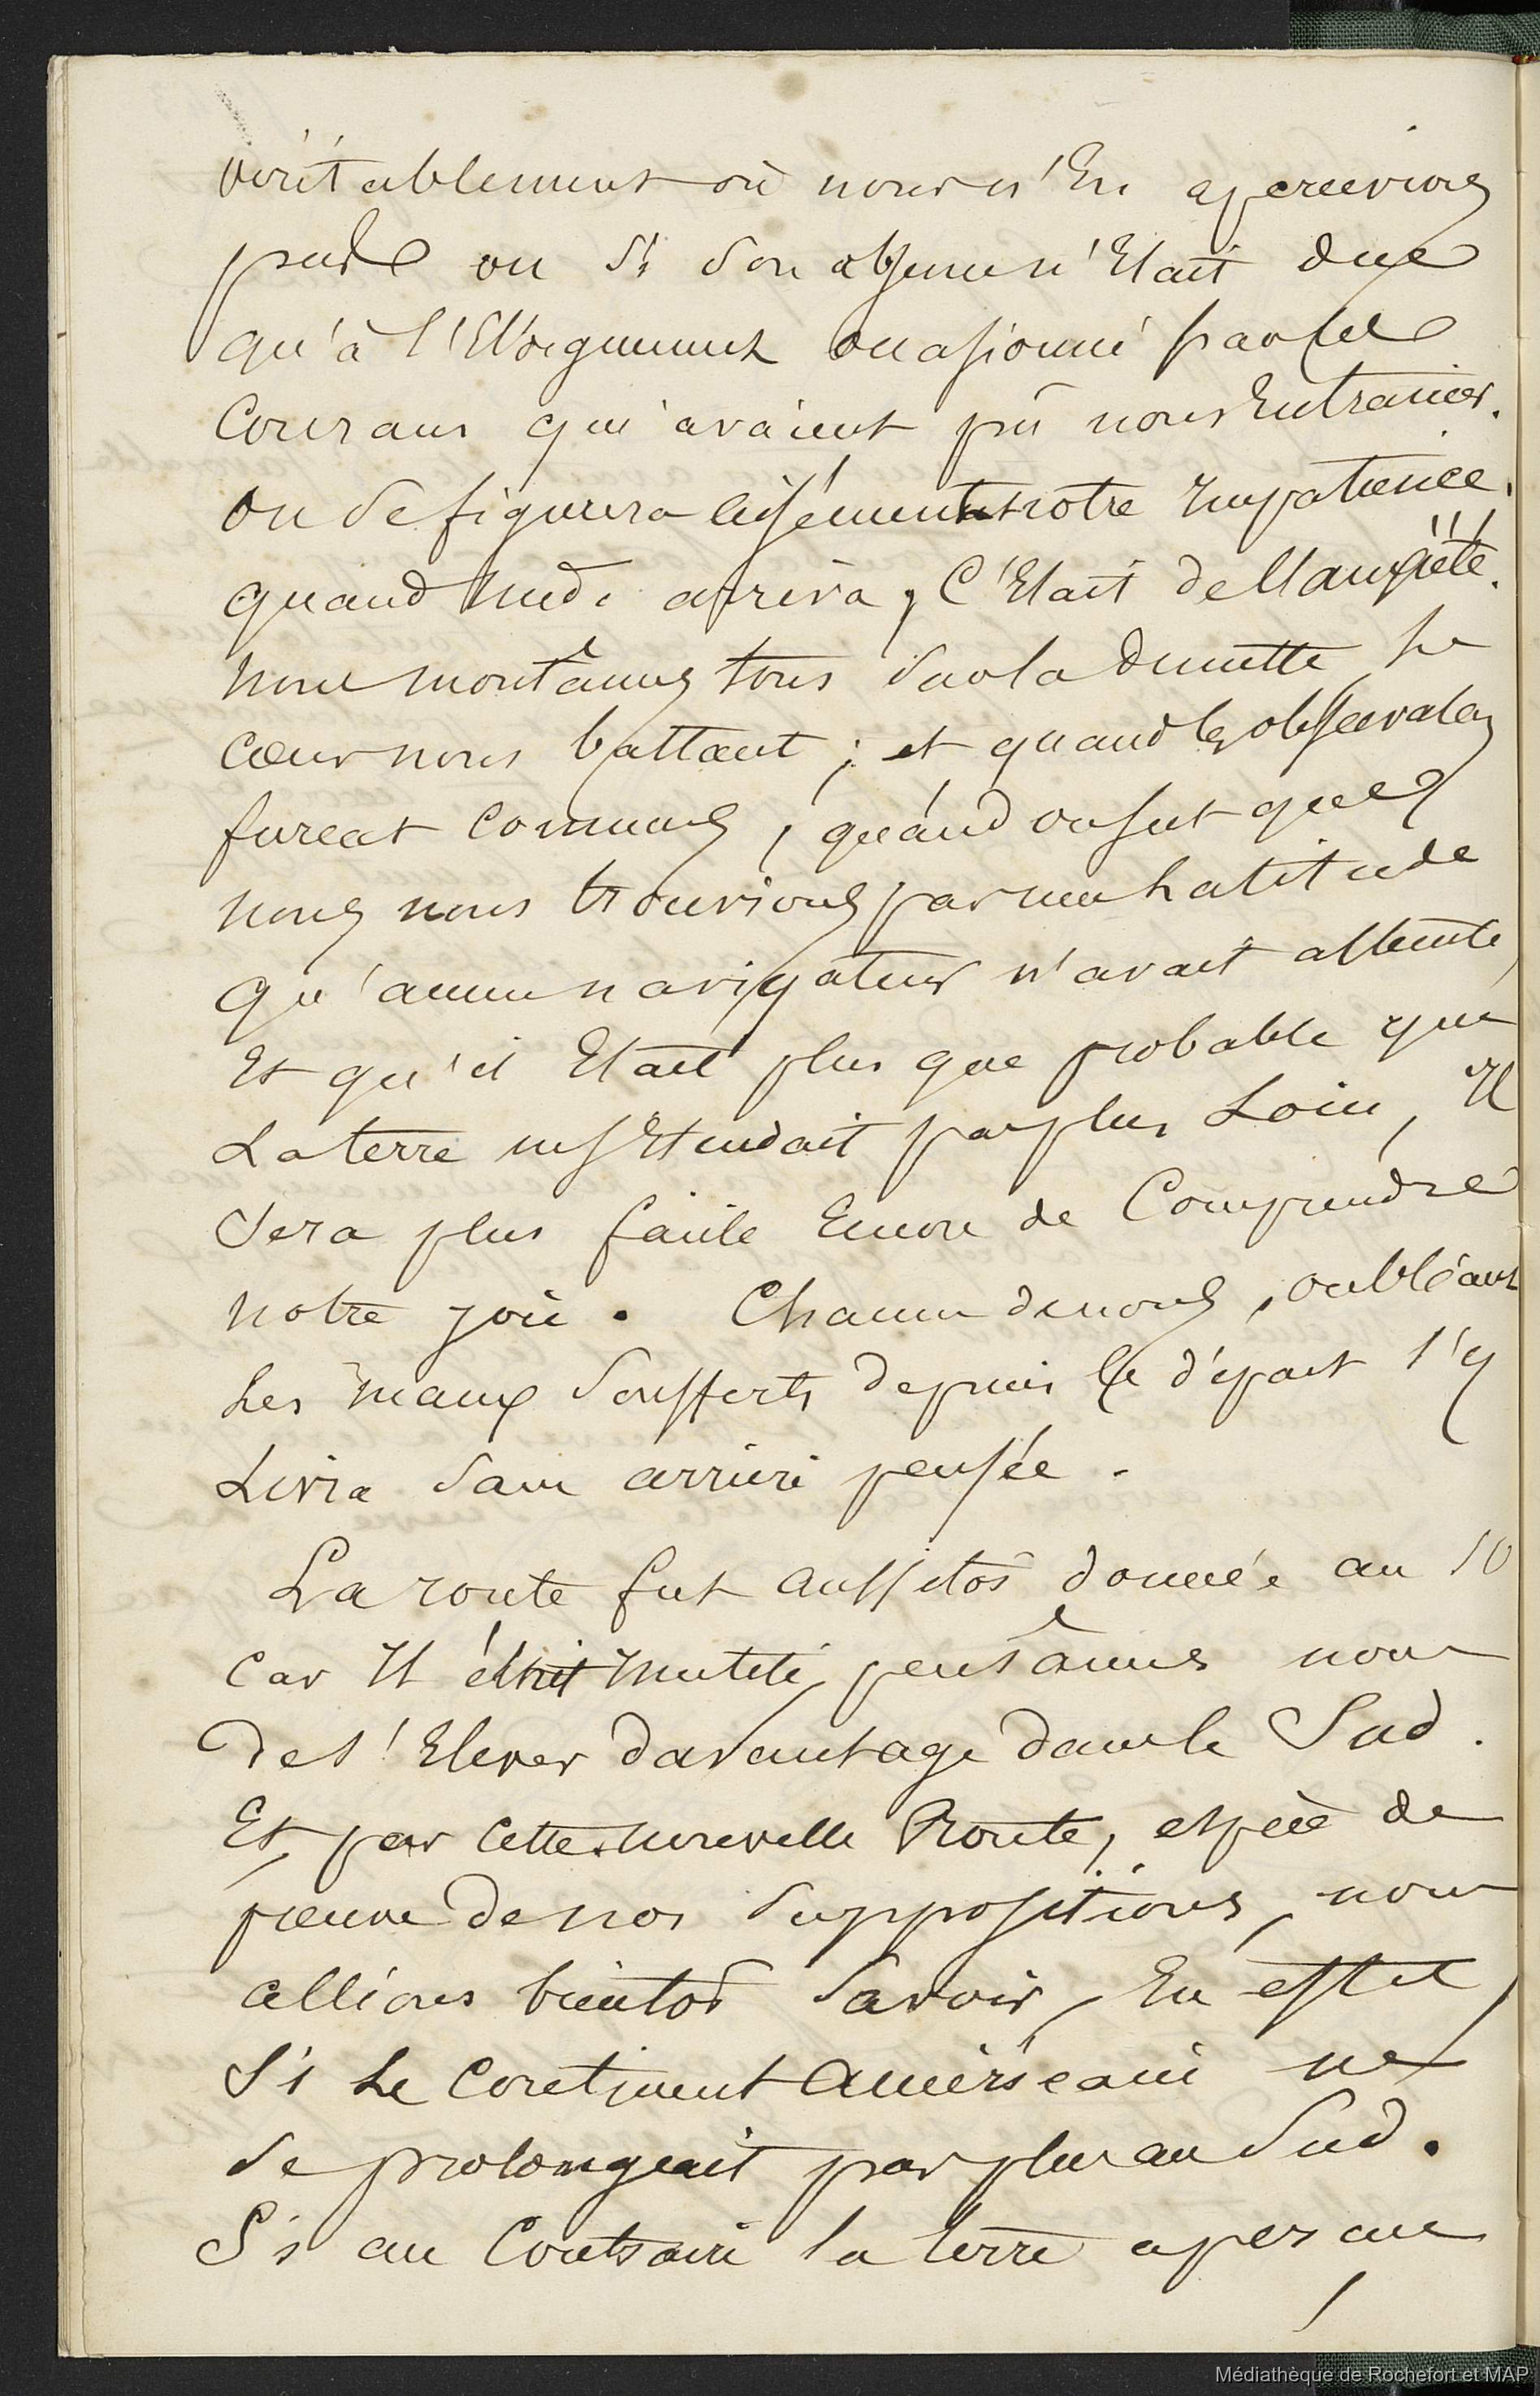 véritablement où nous n'En apercevions
pas ou Si Son absence n'Etait due
qu'à l'Eloignement occasionné par les
Courans qui avaient pû nous Entrainer.
On Se figurera aisément notre Impatience.
quand midi arriva, C'Etait de l'anxiété.
Nous montâmes tous Sur la dunette, Le
Cœur nous battant ; et quand les observations
furent Connues, quand on sut que
nous nous trouvions par une Latitude
qu'aucun navigateur n'avait atteinte,
Et qu'il Etait plus que probable que
La terre ne s'Etendait pas plus Loin, Il
Sera plus facile Encore de Comprendre
notre joie. Chacun de nous, oubliant
Les maux Soufferts depuis le départ s'y
Livra Sans arriere pensée.
La route fut aussitôt donnée au SO
Car Il était Inutile, pensâmes nous
de s'Elever davantage dans le Sud.
Et, par Cette nouvelle Route, espèce de
preuve de nos Suppositions, nous
allions bientôt Savoir, En effet,
Si Le Continent Américain ne
Se prolongeait pas plus au Sud.
Si au Contraire la terre aperçue
Médiathèque de Rochefort et MAP